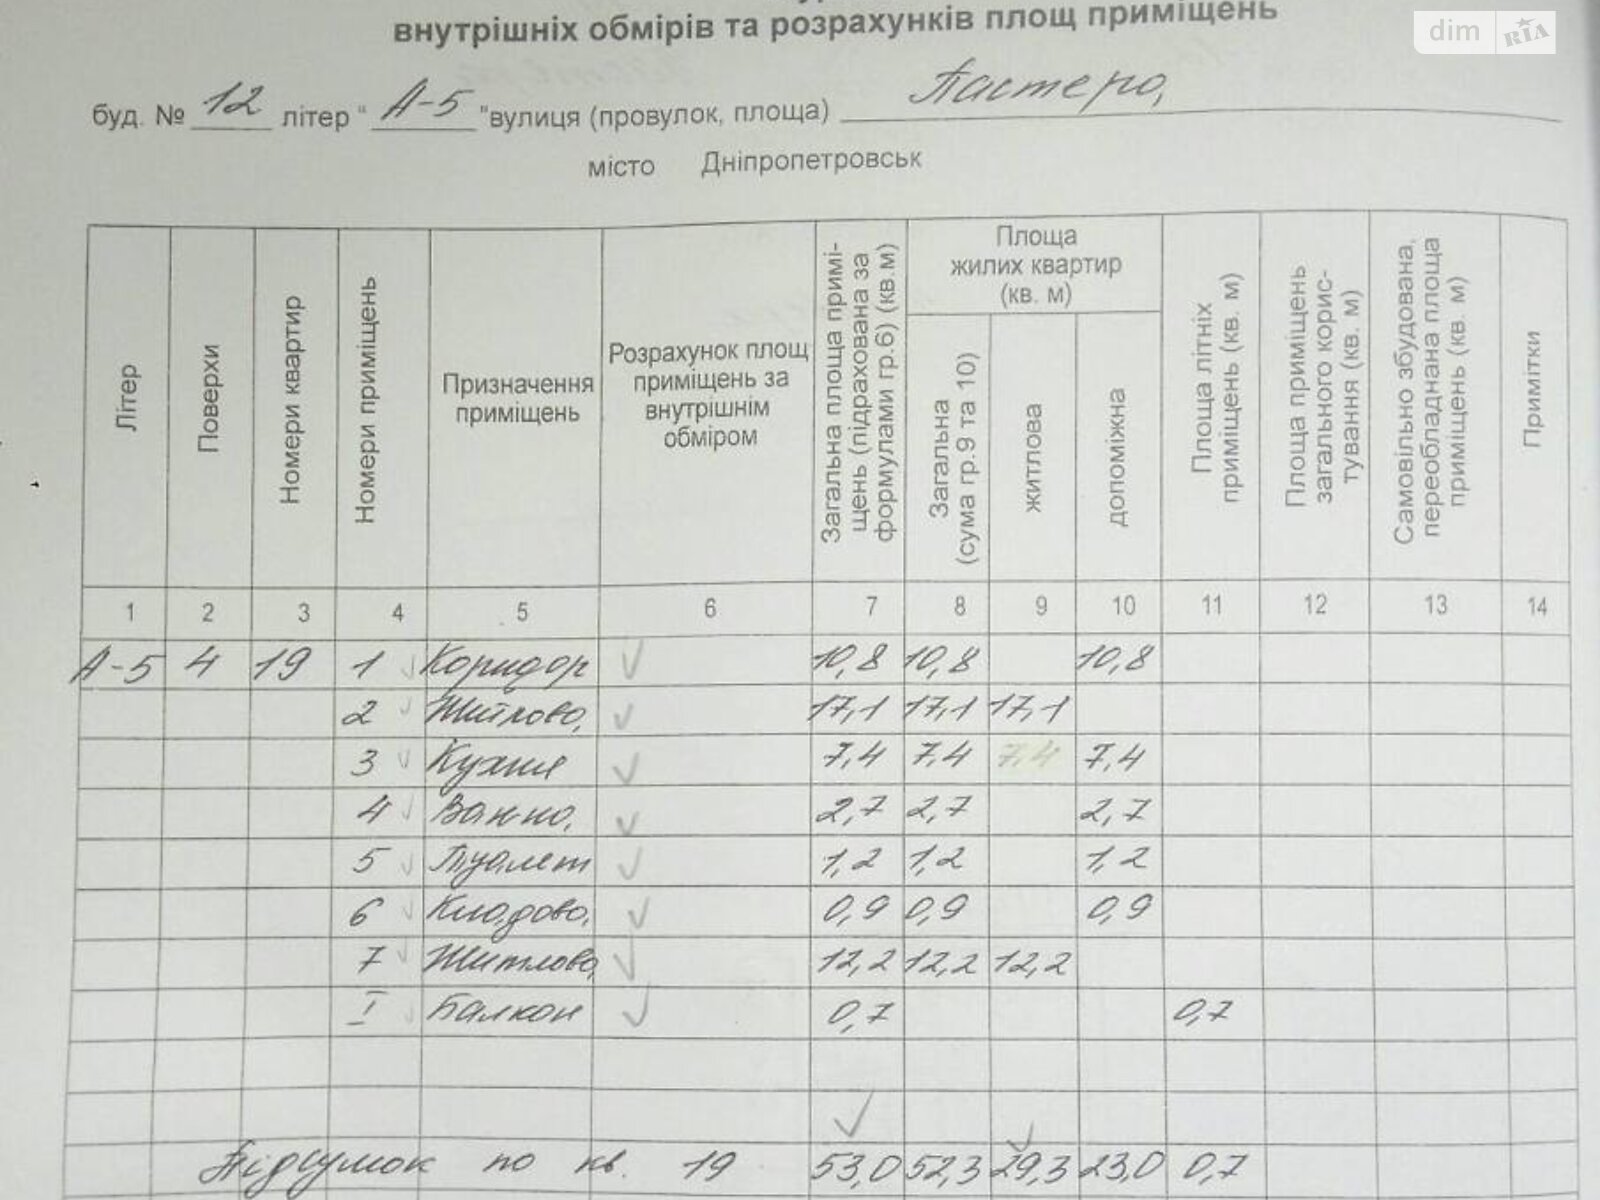 внутрішніх обмірів та розрахунків площ приміщень
dim RIA
буд. № 12 літер " А-5 "вулиця (провулок, площа) Пастера,
місто Дніпропетровськ
Літер
Поверхи
Номери квартир
Номери приміщень
Призначення
приміщень
Розрахунок площ
приміщень за
внутрішнім
обміром
Загальна площа примі-
щень (підрахована за
формулами гр.6) (кв.м)
Площа
жилих квартир
(кв. м)
Загальна
(сума гр.9 та 10)
житлова
допоміжна
Площа літніх
приміщень (кв. м)
Площа приміщень
загального корис-
тування (кв. м)
Самовільно збудована,
переобладнана площа
приміщень (кв. м)
Примітки
1 2 3 4 5 6 7 8 9 10 11 12 13 14
А-5 4 19 1 Коридор 10,8 10,8 10,8
2 Житлова, 17,1 17,1 17,1
3 Кухня 7,4 7,4 7,4 7,4
4 Ванна, 2,7 2,7 2,7
5 Туалет 1,2 1,2 1,2
6 Кладова, 0,9 0,9 0,9
7 Житлова, 12,2 12,2 12,2
I Балкон 0,7 0,7
Підсумок по кв. 19 53,0 52,3 29,3 23,0 0,7